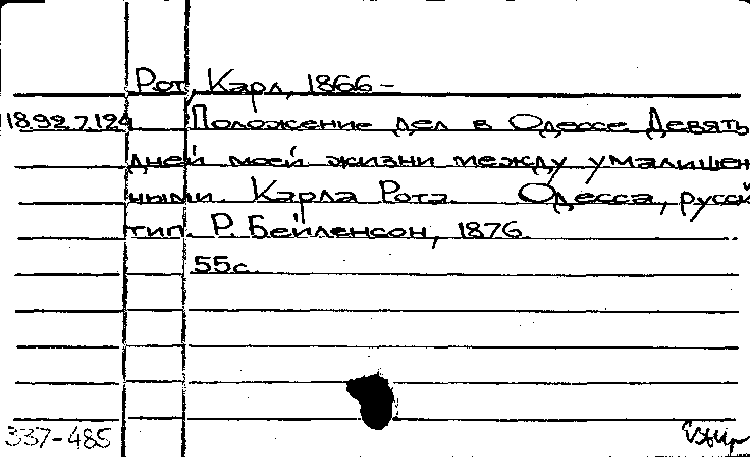 Рот, Карл, 1866-
1892 7.124 Положение дел в Одессе Девять
дней моей жизни между умалишен
ными. Карла Рота. Одесса, русск
тип. Р. Бейленсон, 1876.
55с.
337-485